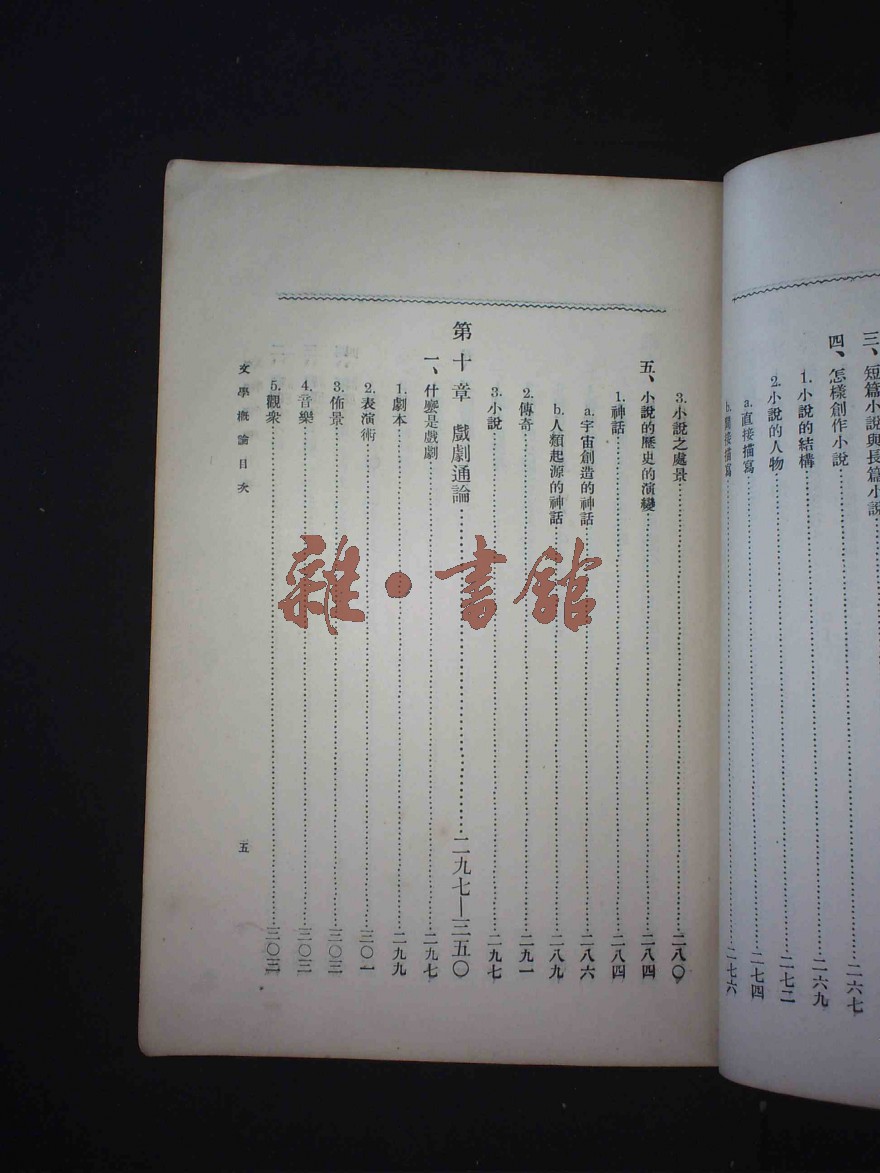 三、短篇小說與長篇小說
四、怎樣創作小說……二六七
1.小說的結構……二六九
2.小說的人物……二七二
a.直接描寫……二七四
b.間接描寫……二七六
3.小說之處景……二八〇
五、小說的歷史的演變……二八四
1.神話……二八四
a.宇宙創造的神話……二八六
b.人類起源的神話……二八九
2.傳奇……二九一
3.小說……二九七
第十章 戲劇通論……二九七—三五〇
一、什麼是戲劇……二九七
1.劇本……二九九
2.表演術……三〇一
3.佈景……三〇三
4.音樂……三〇三
5.觀衆……三〇三
文學概論目次
五
雜·書館